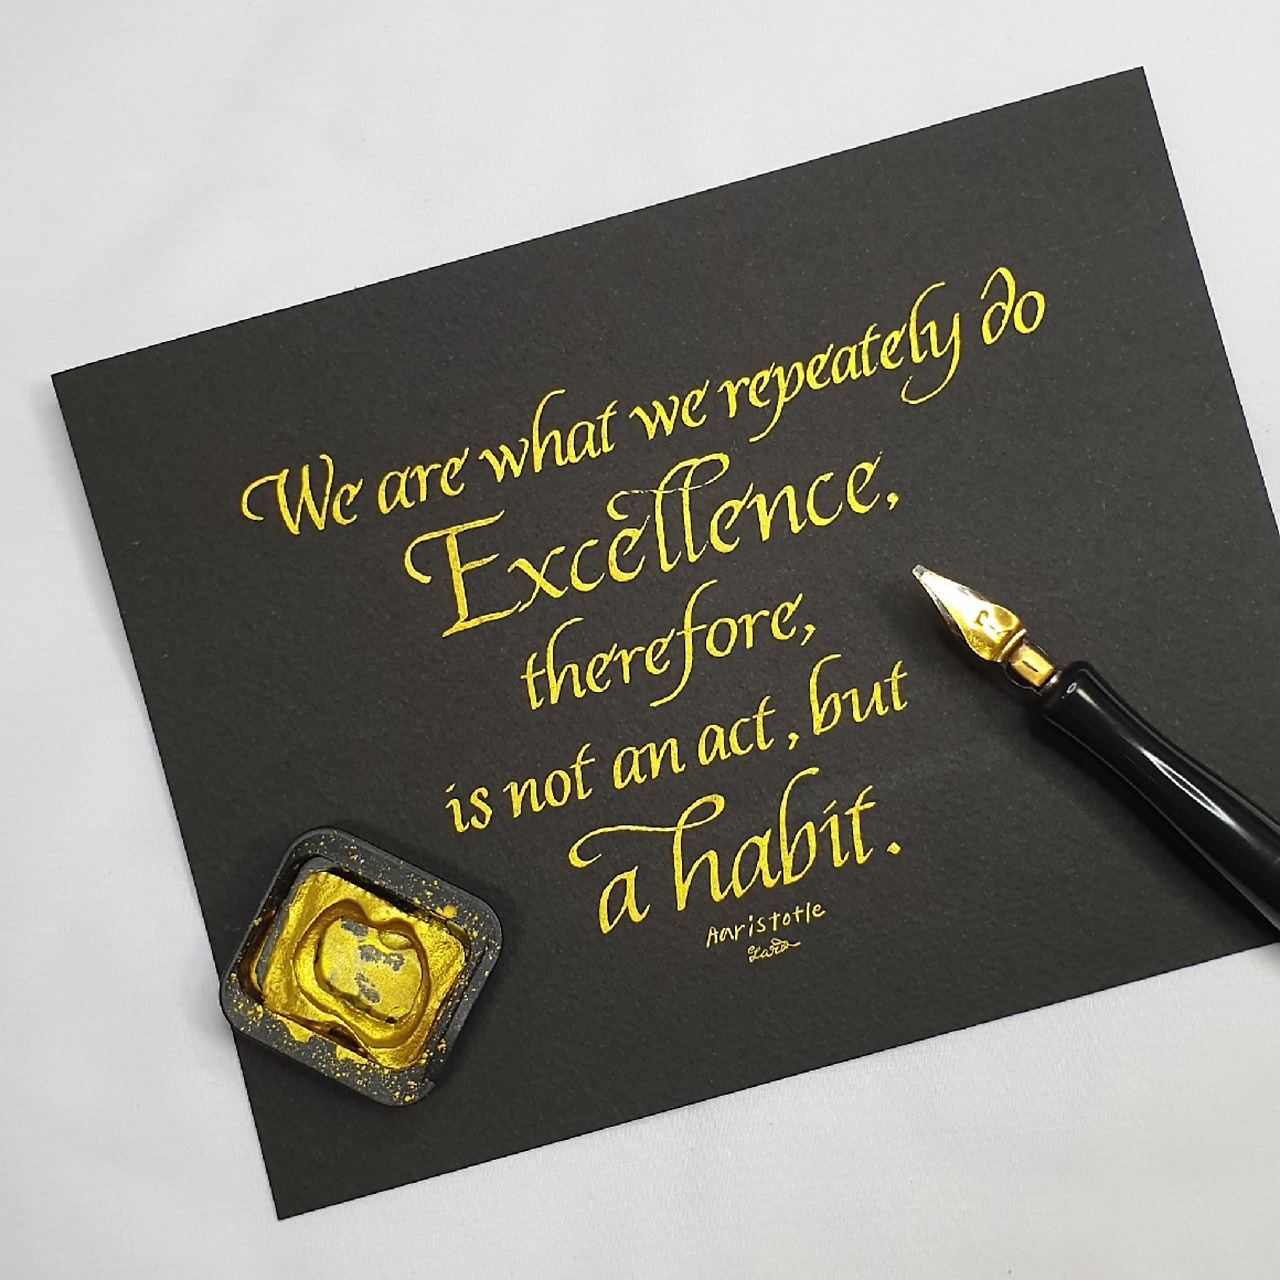 We are what we repeately do
Excellence,
therefore,
is not an act, but
a habit.
Aaristotle
Lara